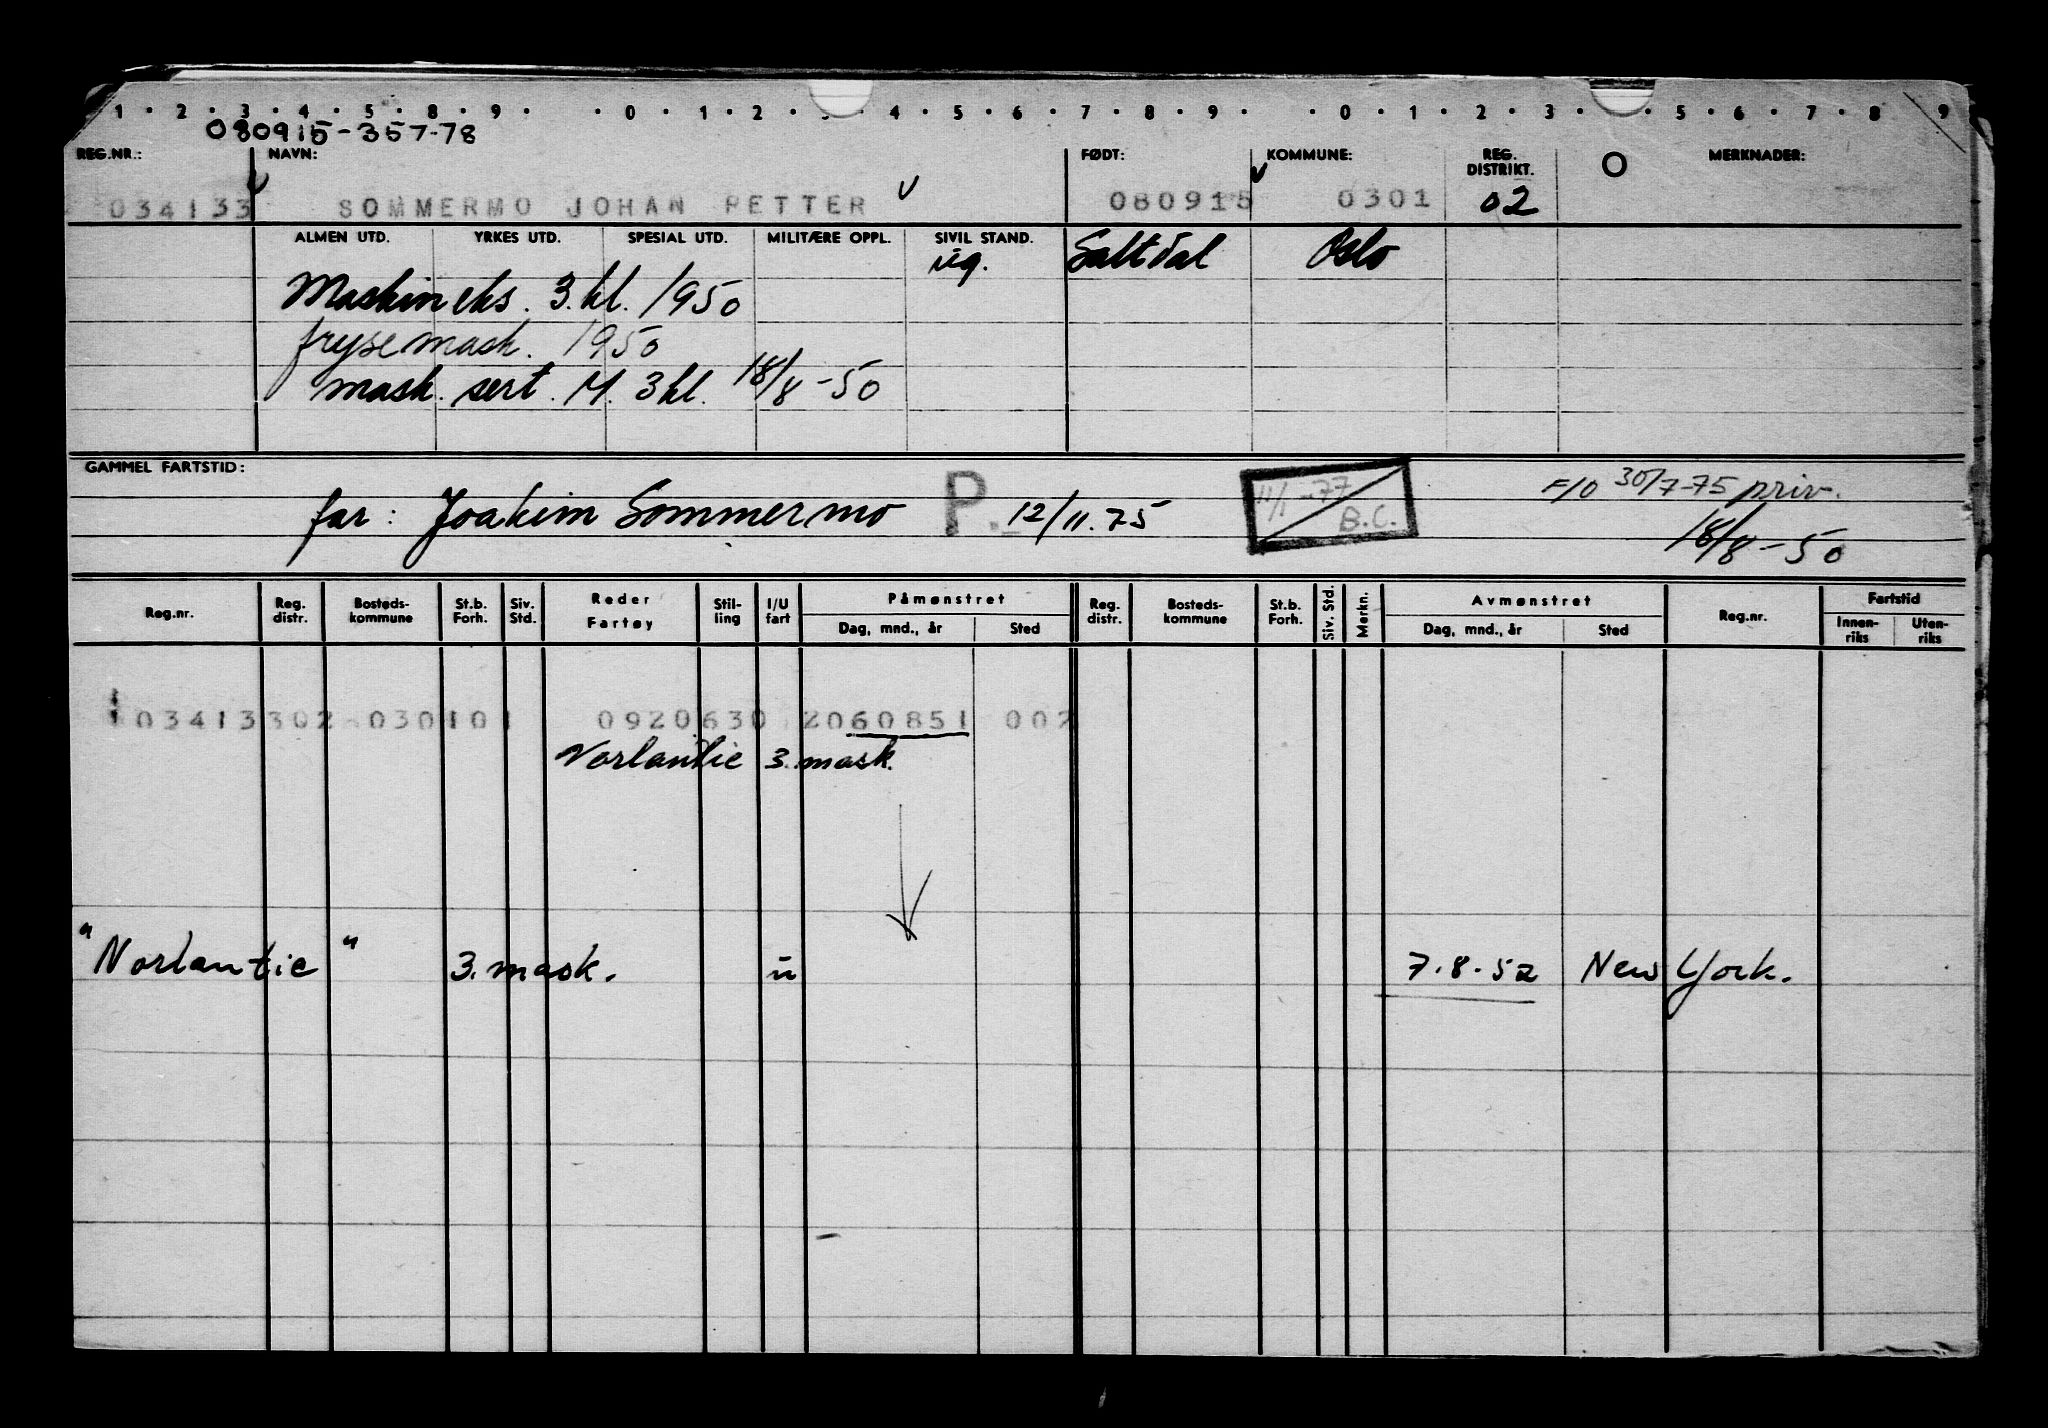 1 · 2 · 3 · 4 · 5 · 8 · 9 · · 0 · 1 · 2 · 3 · 4 · 5 · 6 · 7 · 8 · 9 · · 0 · 1 · 2 · 3 · · 5 · 6 · 7 · 8 9
080915-357-78
REG.NR.: NAVN: FØDT: KOMMUNE: REG. DISTRIKT. O MERKNADER:
034133 SOMMERMO JOHAN PETTER 080915 0301 02
ALMEN UTD. YRKES UTD. SPESIAL UTD. MILITÆRE OPPL. SIVIL STAND. Saltdal Oslo
ug.
Maskin eks. 3. kl. 1950
frysemask. 1950
mask. sert. M. 3 kl. 18/8-50
GAMMEL FARTSTID:
far: Joakim Sommermo P. 12/11.75 11/1-77 B.C. F/O 30/7-75 priv.
18/8-50
Reg.nr. Reg. distr. Bosteds-kommune St.b. Forh. Siv. Std. Reder Fartøy Stil-ling I/U fart Påmønstret Dag, mnd., år Sted Reg. distr. Bosteds-kommune St.b. Forh. Siv. Std. Merkn. Avmønstret Dag, mnd., år Sted Reg.nr. Fartstid Innen-riks Uten-riks
03413302 030101 0920630 2060851 002
Norlantic 3. mask.
"Norlantic" 3. mask. u 7.8.52 New York.